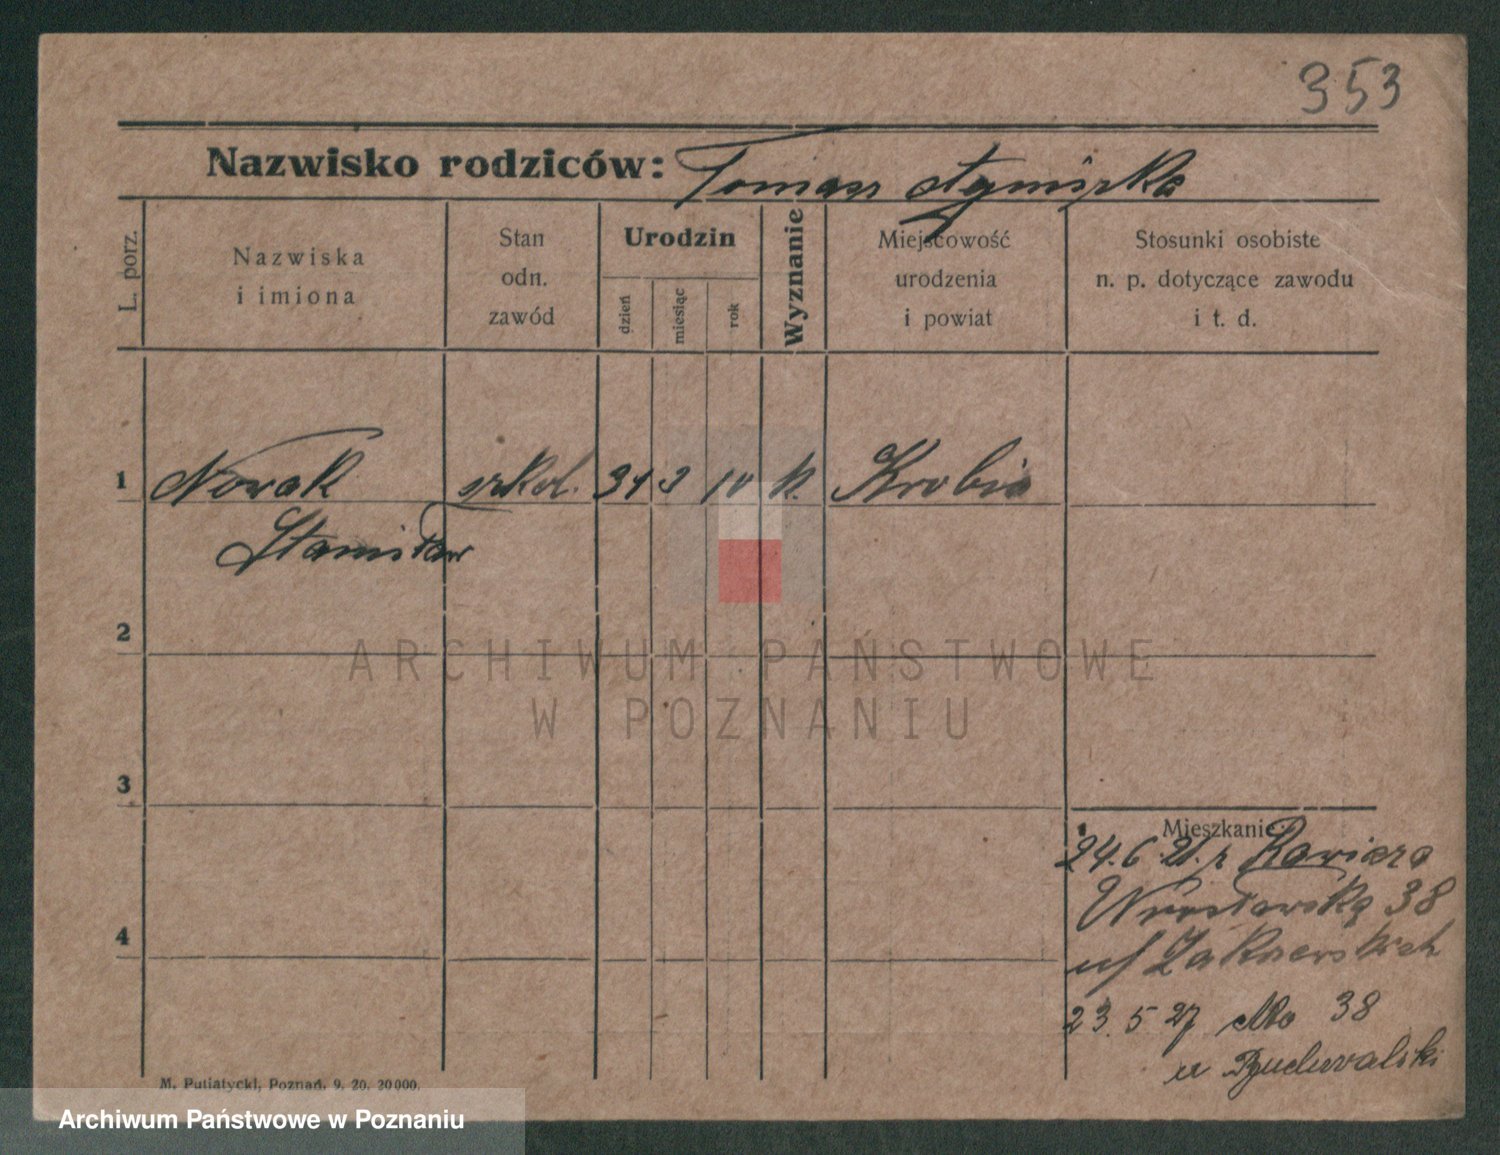 353
Nazwisko rodziców: Tomasz
L. porz.
Nazwiska
i imiona
Stan
odn.
zawód
Urodzin
dzień
miesiąc
rok
Wyznanie
Miejscowość
urodzenia
i powiat
Stosunki osobiste
n. p. dotyczące zawodu
i t. d.
1 Nowak szkol. 31 3 10 k. Krobia
Stanisław
2
ARCHIWUM PAŃSTWOWE
W POZNANIU
3
Mieszkanie:
24.6.21. z
Wrocławska 38
4
23.5 27 No 38
u
M. Putiatycki, Poznań. 9. 20. 20000.
Archiwum Państwowe w Poznaniu